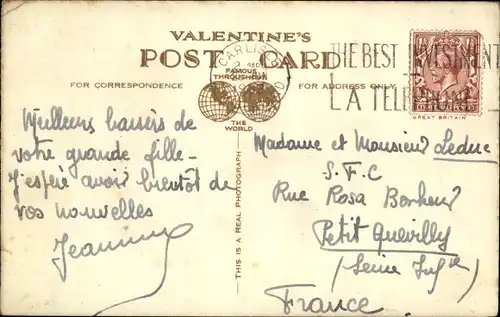 VALENTINE'S
POST CARD
FAMOUS
THROUGHOUT
THE
WORLD
FOR CORRESPONDENCE
FOR ADDRESS ONLY
CARLISLE
THE BEST INVESTMENT
A TELEPHONE
GREAT BRITAIN
THIS IS A REAL PHOTOGRAPH
Meilleurs baisers de
votre grande fille -
J'espère avoir bientôt de
vos nouvelles
Jeannine
Madame et Monsieur Leduc
S.F.C
Rue Rosa Bonheur
Petit Quevilly
(Seine Infre)
France